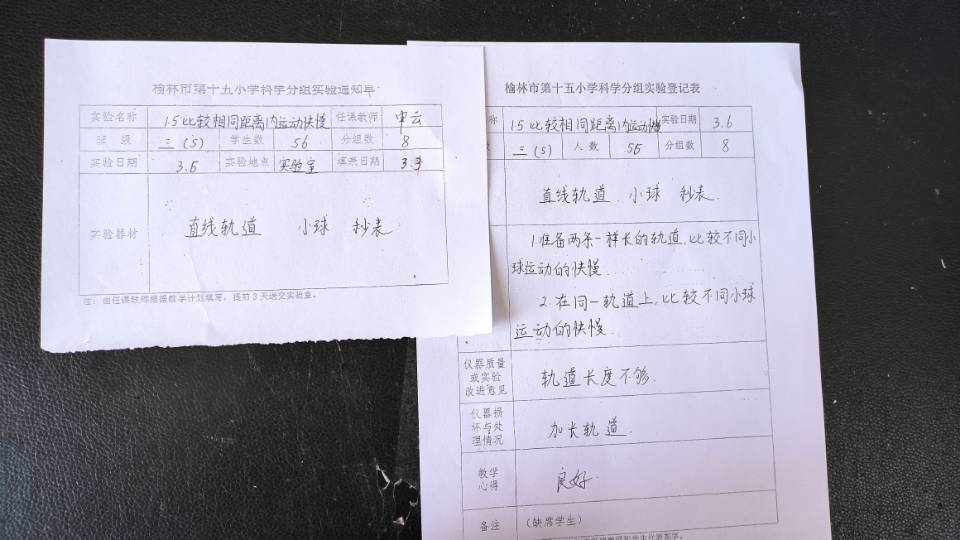 榆林市第十五小学科学分组实验通知单
实验名称 1.5比较相同距离内运动快慢 任课教师 申云
班 级 三(5) 学生数 56 分组数 8
实验日期 3.6 实验地点 实验室 填表日期 3.3
实验器材 直线轨道 小球 秒表
注:由任课教师根据教学计划填写,提前3天送交实验室。
榆林市第十五小学科学分组实验登记表
称 1.5比较相同距离内运动快慢 实验日期 3.6
三(5) 人 数 56 分组数 8
直线轨道 小球 秒表
1.准备两条一样长的轨道,比较不同小
球运动的快慢.
2.在同一轨道上,比较不同小球
运动的快慢.
仪器质量
或实验
改进意见
轨道长度不够.
仪器损
坏与处
理情况
加长轨道.
教学
心得
良好.
备注 (缺席学生)